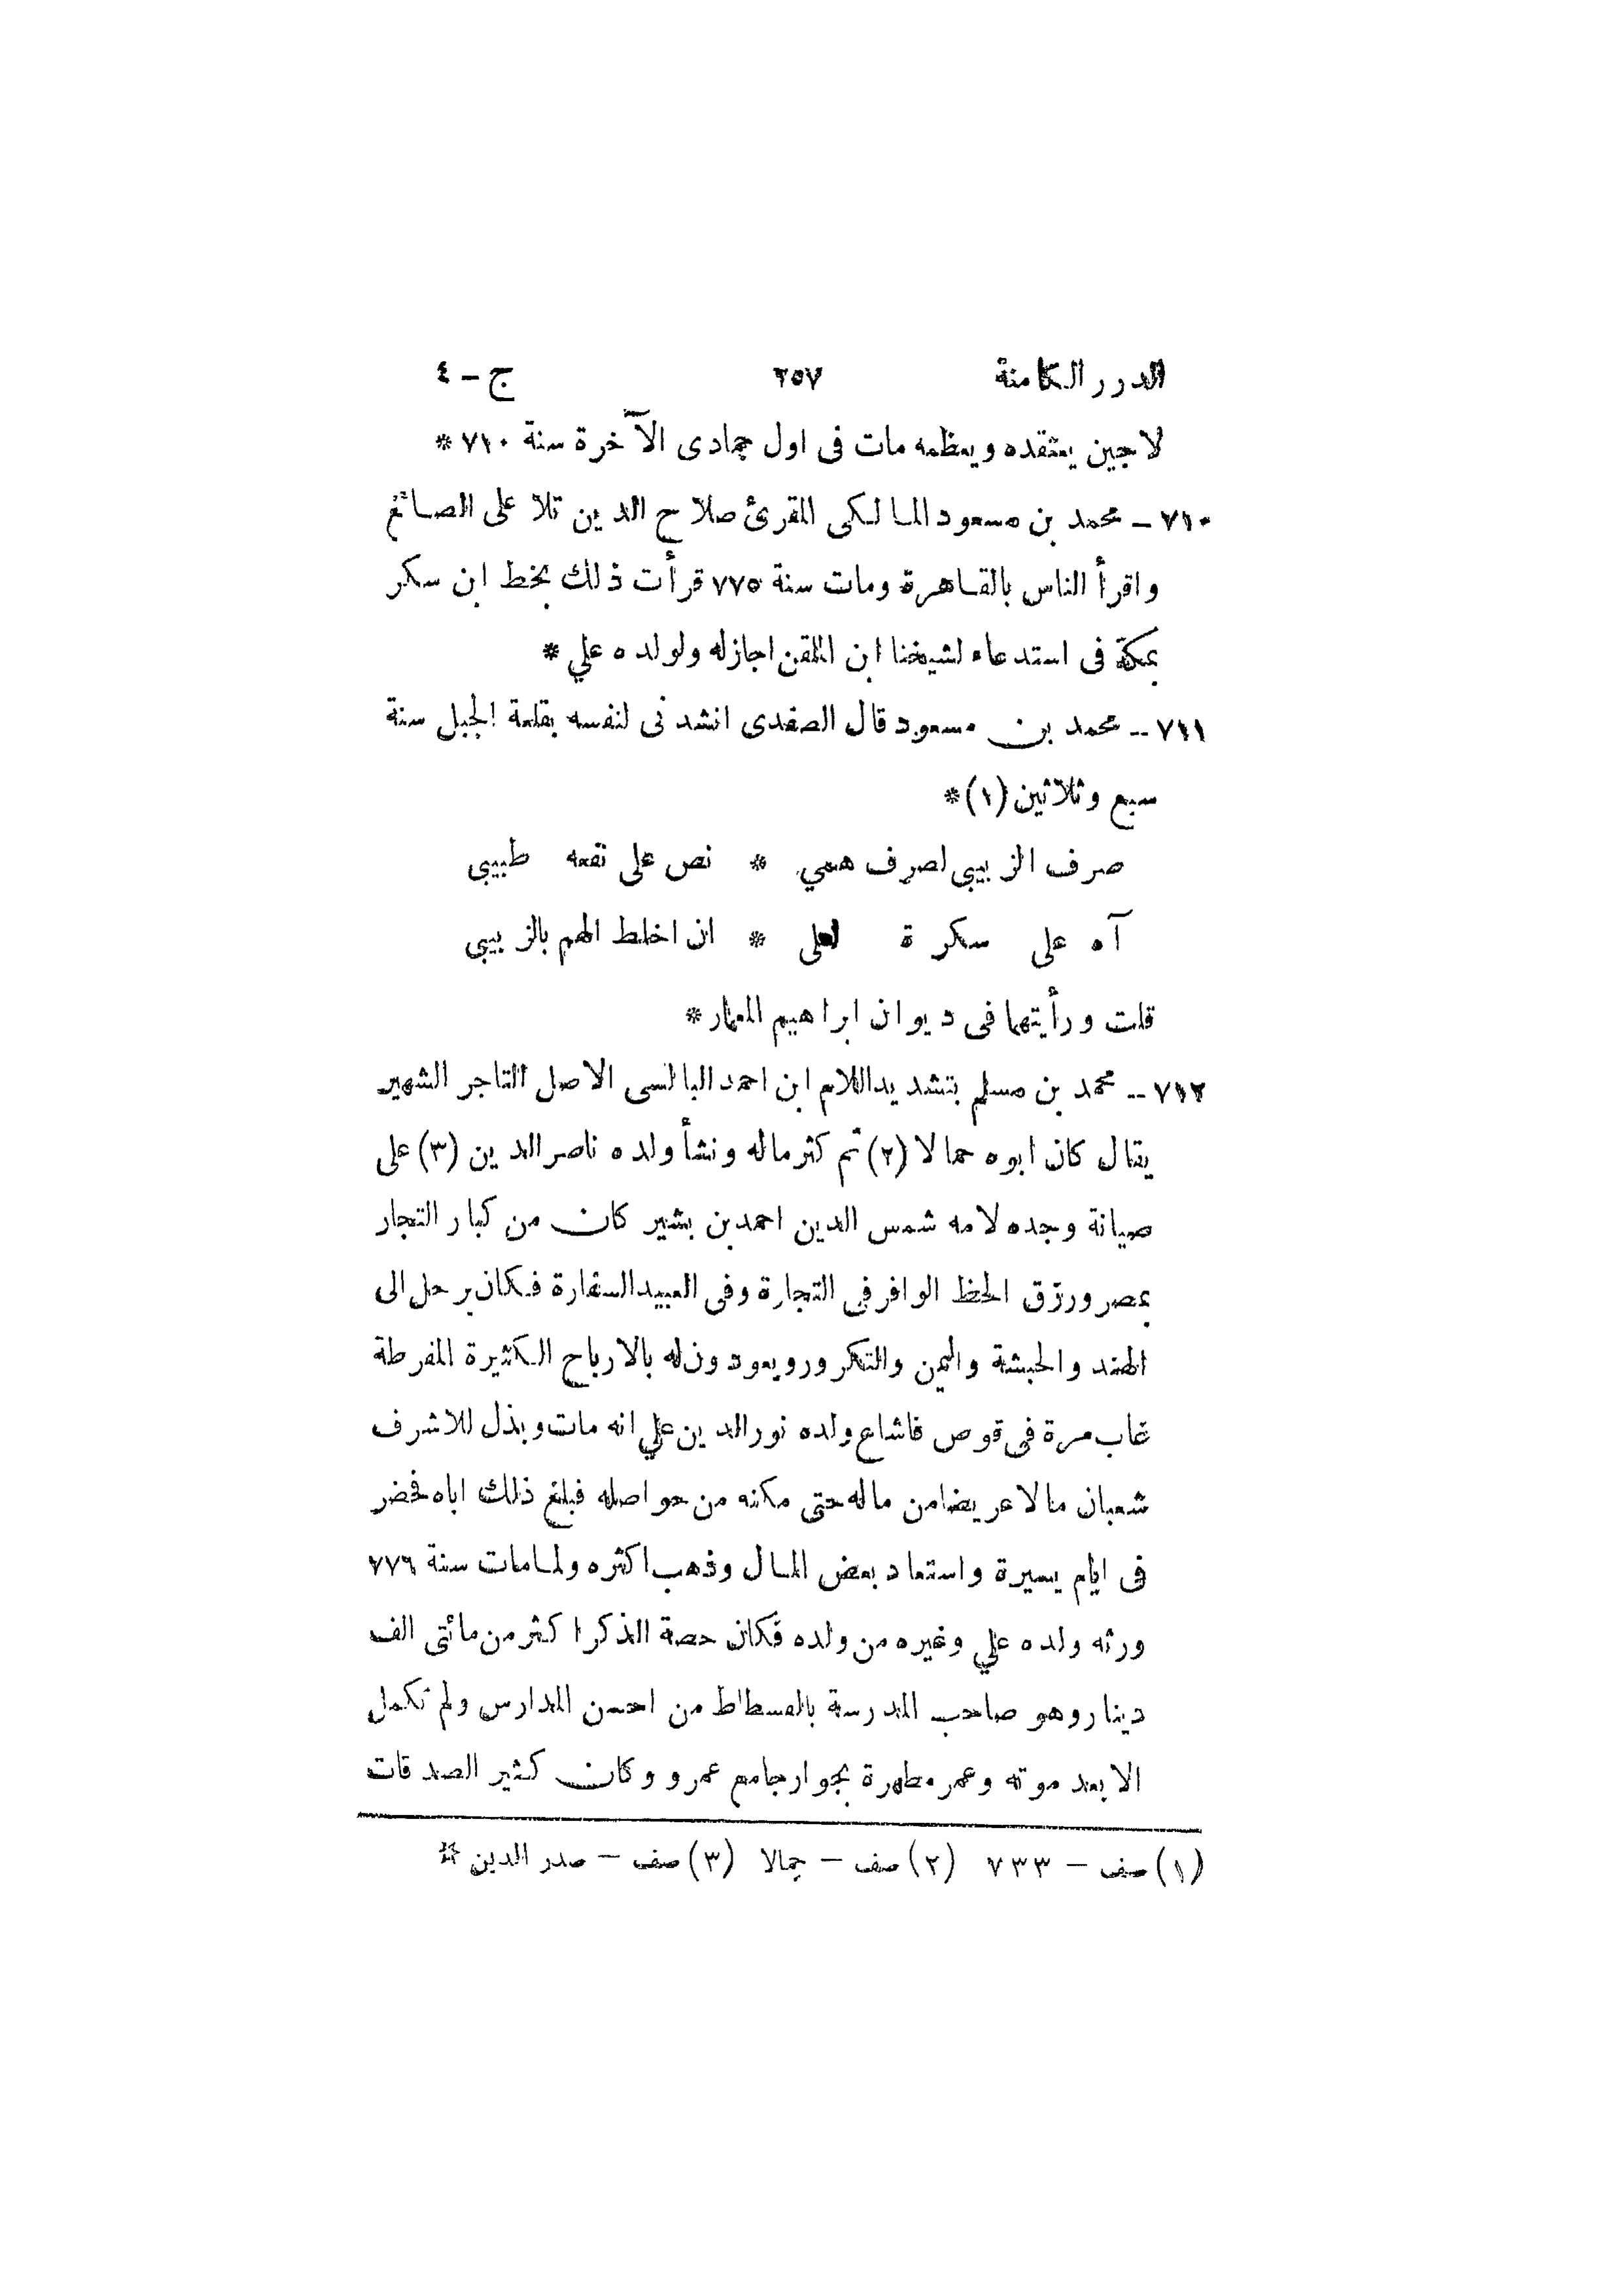 الدرر الكامنة ٢٥٧ ج - ٤
لاجين يعتقده ويعظمه مات فى اول جمادى الآخرة سنة ٧١٠ *
٧١٠ - محمد بن مسعود المالكى المقرئ صلاح الدين تلا على الصائغ
واقرأ الناس بالقاهرة ومات سنة ٧٧٥ قرأت ذلك بخط ابن سكر
بمكة فى استدعاء لشيخنا ابن الملقن اجازله ولولده علي *
٧١١ - محمد بن مسعود قال الصفدى انشدنى لنفسه بقلعة الجبل سنة
سبع وثلاثين (١) *
صرف الزبيبى لصرف همي * نص على نفعه طبيبى
آه على سكرة لعلى * ان اخلط الهم بالزبيبى
قلت ورأيتهما فى ديوان ابراهيم المعمار *
٧١٢ - محمد بن مسلم بتشديد اللام ابن احمد البالسى الاصل التاجر الشهير
يقال كان ابوه حمالا (٢) ثم كثر ماله ونشأ ولده ناصر الدين (٣) على
صيانة وجده لامه شمس الدين احمد بن بشير كان من كبار التجار
بمصر ورزق الحظ الوافر فى التجارة وفى العبيد السفارة فكان يرحل الى
الهند والحبشة واليمن والتكرور ويعودون له بالارباح الكثيرة المفرطة
غاب مرة فى قوص فاشاع ولده نور الدين علي انه مات وبذل للاشرف
شعبان مالا عريضا من ماله حتى مكنه من حواصله فبلغ ذلك اباه فحضر
فى ايام يسيرة واستعاد بعض المال وذهب اكثره ولما مات سنة ٧٧٦
ورثه ولده علي وغيره من ولده فكان حصة الذكر اكثر من مائتى الف
دينار وهو صاحب المدرسة بالفسطاط من احسن المدارس ولم تكمل
الا بعد موته وعمر مطهرة بجوار جامع عمرو وكان كثير الصدقات
(١) صف - ٧٣٣ (٢) صف - جمالا (٣) صف - صدر الدين *